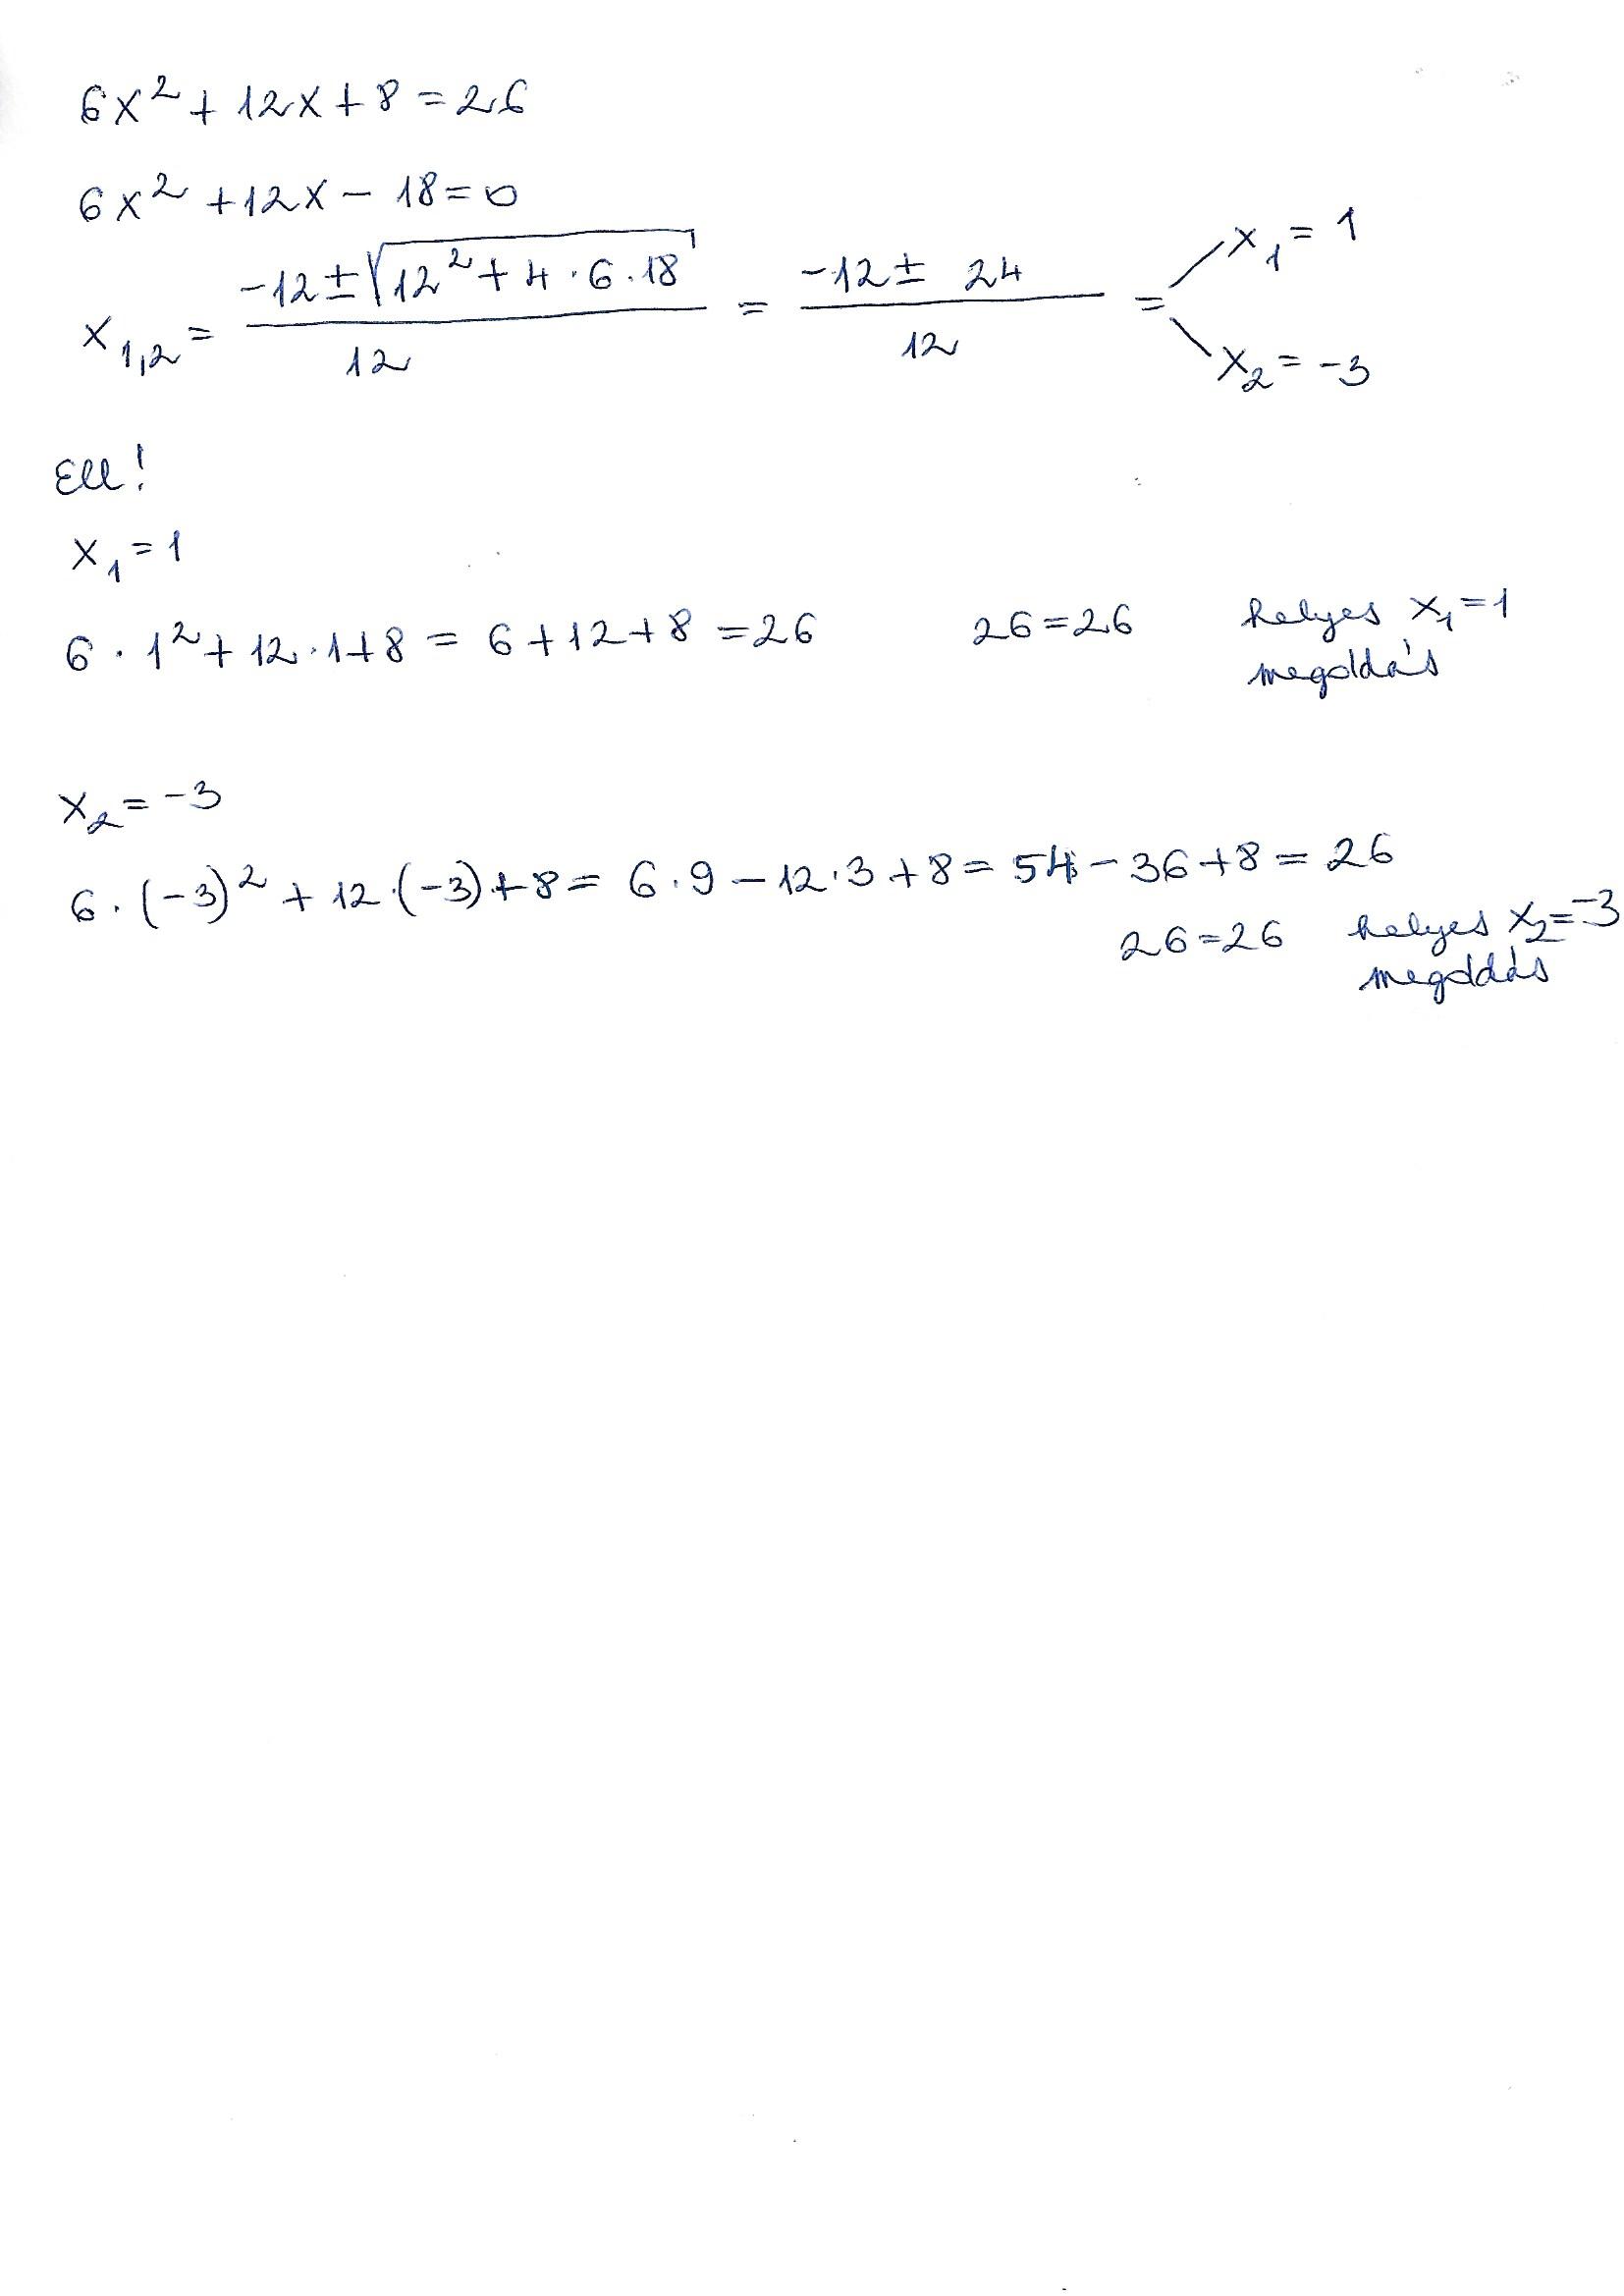 6x² + 12x + 8 = 26
6x² + 12x - 18 = 0
x₁,₂ = (-12 ± √(12² + 4 · 6 · 18)) / 12 = (-12 ± 24) / 12 = x₁ = 1
x₂ = -3
Ell!
x₁ = 1
6 · 1² + 12 · 1 + 8 = 6 + 12 + 8 = 26 26 = 26 helyes x₁ = 1
megoldás
x₂ = -3
6 · (-3)² + 12 · (-3) + 8 = 6 · 9 - 12 · 3 + 8 = 54 - 36 + 8 = 26
26 = 26 helyes x₂ = -3
megoldás